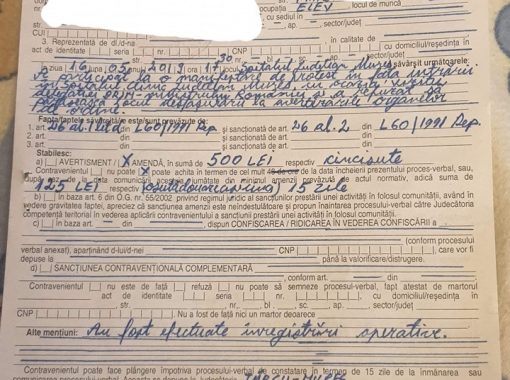 ocupația ELEV , locul de muncă
cu sediul în
ap. sector/județ
3. Reprezentată de dl./d-na
act de identitate seria nr. CNP cu domiciliul/reședința în
str. nr. bl. sc. et. ap. sector/județ
în ziua 16 luna 05 anul 2013 ora 17 30 locul Spitalul Județean Mureș a săvârșit următoarele:
A participat la o manifestare de protest în fața intrării
în Spitalul Clinic Județean Mureș, cu ocazia vizitei
delegației prim-ministrului României și a refuzat să
părăsească locul desfășurării la avertizările organelor
de ordine.
Fapta/faptele săvârșită/e este/sunt prevăzute de:
1. art. 26 al.1 lit.d din L60/1991 Rep. și sancționată de art. 26 al.2 din L60/1991 Rep.
2. art. din și sancționată de art. din
3. art. din și sancționată de art. din
Stabilesc:
a) AVERTISMENT / X AMENDĂ, în sumă de 500 LEI respectiv cincisute
Contravenientul nu poate X poate achita în termen de cel mult de la data încheierii prezentului proces-verbal, sau
după caz de la data comunicării, din minimul amenzii prevăzute de actul normativ, adică suma de
125 LEI respectiv 15 zile
b) în baza art. 6 din O.G. nr. 55/2002 privind regimul juridic al sancțiunilor prestării unei activități în folosul comunității, având în
vedere gravitatea faptei, apreciez că sancțiunea amenzii este neîndestulătoare și propun înaintarea procesului-verbal către Judecătoria
competentă teritorial în vederea aplicării contravenientului a sancțiunii prestării unei activități în folosul comunității.
c) în baza art. din , dispun CONFISCAREA / RIDICAREA ÎN VEDEREA CONFISCĂRII a
(conform procesului
verbal anexat), aparținând d-lui/d-nei CNP , care vor fi
depuse la până la valorificare/distrugere.
d) SANCȚIUNEA CONTRAVENȚIONALĂ COMPLEMENTARĂ
, conform art. din
Contravenientul nu este de față refuză nu poate să semneze procesul-verbal, fapt atestat de martorul
act de identitate seria nr. , cu domiciliul/reședința în
str. nr. bl. sc. ap. sector/județ
CNP . Nu a fost de față nici un martor deoarece
Alte mențiuni: Au fost efectuate înregistrări operative.
Contravenientul poate face plângere împotriva procesului-verbal de constatare în termen de 15 zile de la înmânarea sau